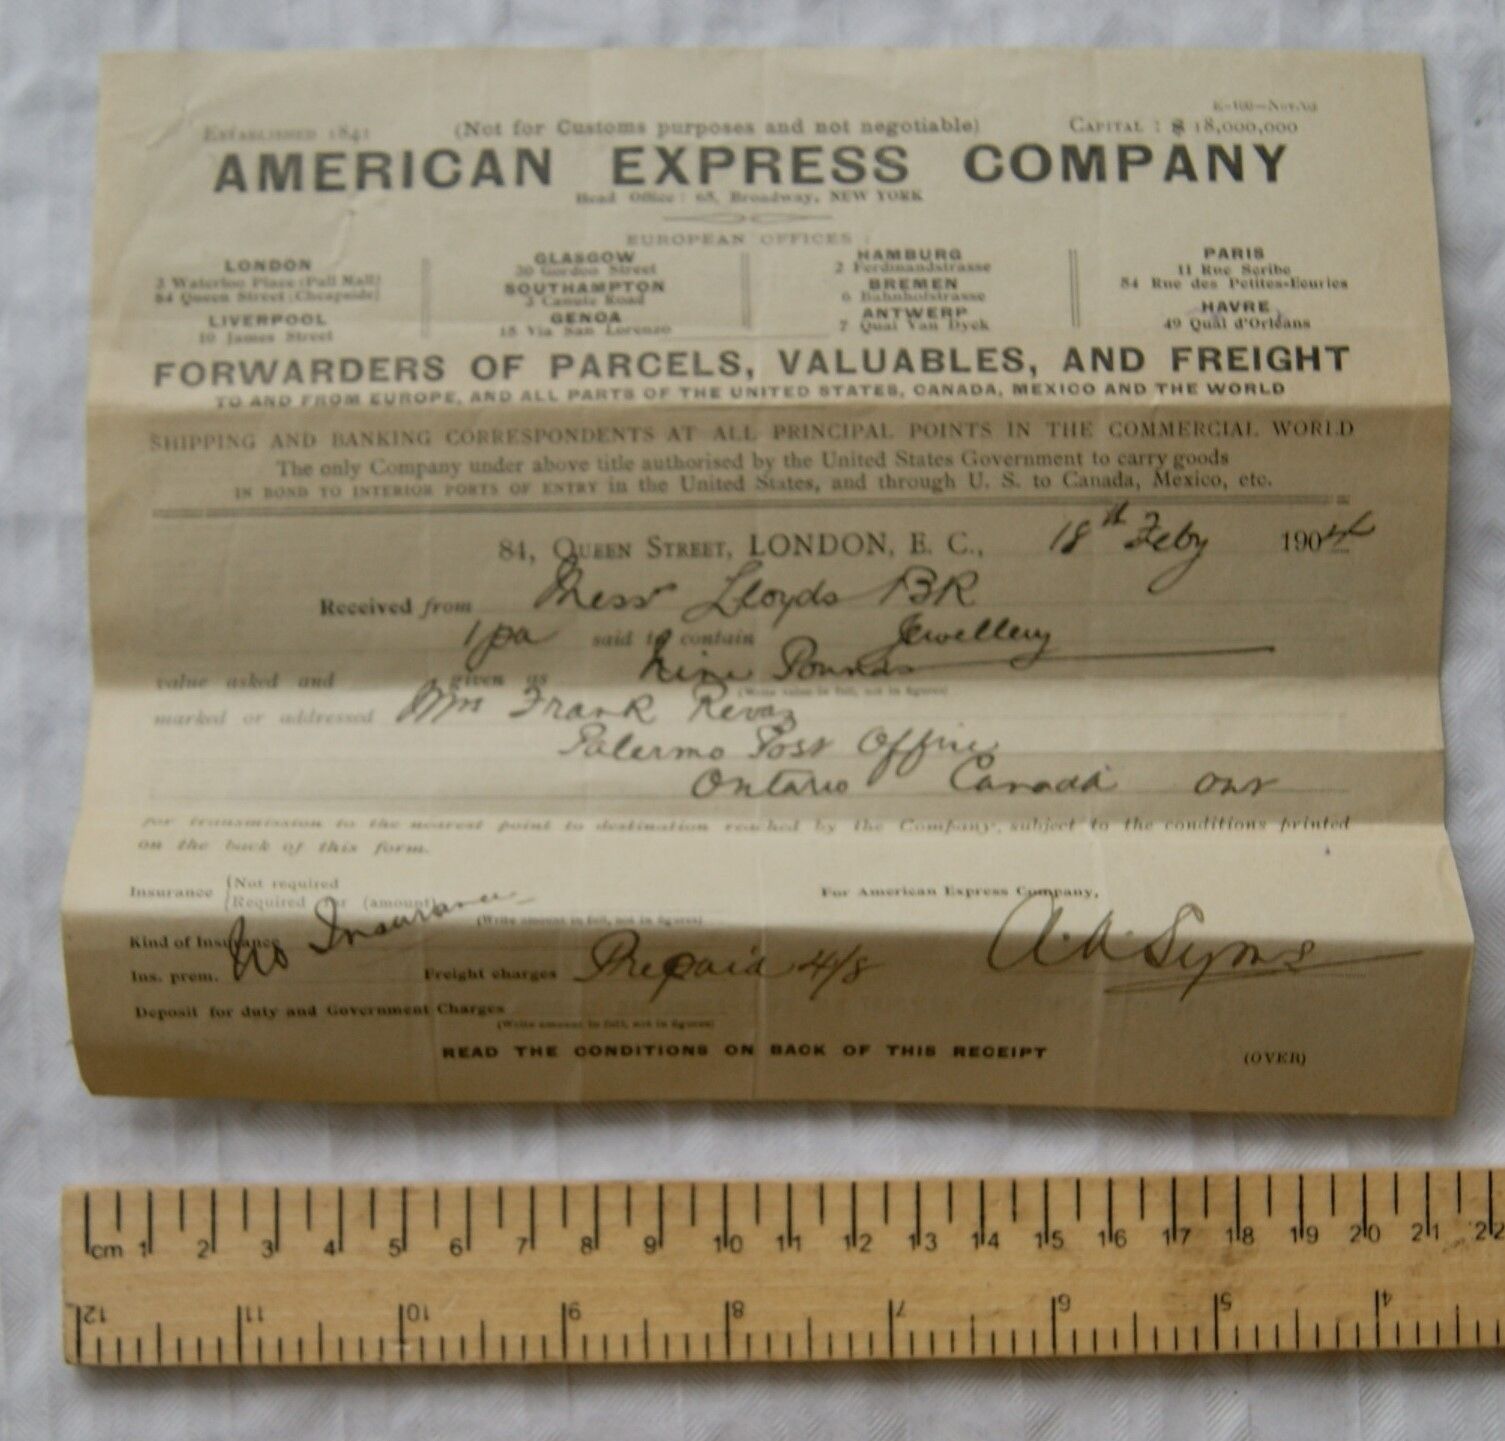 E-100—Nov.
ESTABLISHED 1841 (Not for Customs purposes and not negotiable) CAPITAL : $ 18,000,000
AMERICAN EXPRESS COMPANY
Head Office : 65, Broadway, NEW YORK
EUROPEAN OFFICES :
LONDON
3 Waterloo Place (Pall Mall)
84 Queen Street (Cheapside)
LIVERPOOL
10 James Street
GLASGOW
30 Gordon Street
SOUTHAMPTON
3 Canute Road
GENOA
15 Via San Lorenzo
HAMBURG
2 Ferdinandstrasse
BREMEN
6 Bahnhofstrasse
ANTWERP
7 Quai Van Dyck
PARIS
11 Rue Scribe
54 Rue des Petites-Ecuries
HAVRE
49 Quai d'Orléans
FORWARDERS OF PARCELS, VALUABLES, AND FREIGHT
TO AND FROM EUROPE, AND ALL PARTS OF THE UNITED STATES, CANADA, MEXICO AND THE WORLD
SHIPPING AND BANKING CORRESPONDENTS AT ALL PRINCIPAL POINTS IN THE COMMERCIAL WORLD
The only Company under above title authorised by the United States Government to carry goods
IN BOND TO INTERIOR PORTS OF ENTRY in the United States, and through U. S. to Canada, Mexico, etc.
84, QUEEN STREET, LONDON, E. C., 18th Feby 1904
Received from Messr Lloyds BK
1 pa said to contain Jewellery
value asked and given as Nine Pounds
(Write value in full, not in figures)
marked or addressed Mrs Frank Revaz
Palermo Post Office
Ontario Canada Ont
for transmission to the nearest point to destination reached by the Company, subject to the conditions printed
on the back of this form.
Insurance {Not required
{Required for (amount)
(Write amount in full, not in figures)
For American Express Company,
Kind of Insurance No Insurance
Ins. prem. Freight charges Prepaid 4/8
A. A. Syms
Deposit for duty and Government Charges
(Write amount in full, not in figures)
READ THE CONDITIONS ON BACK OF THIS RECEIPT (OVER)
cm 1 2 3 4 5 6 7 8 9 10 11 12 13 14 15 16 17 18 19 20 21 22
12 11 10 9 8 7 6 5 4